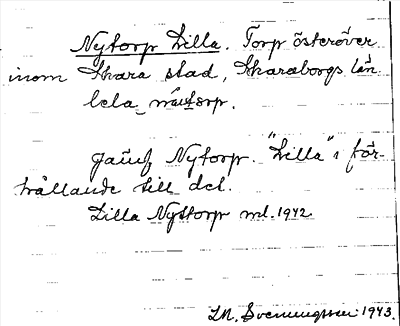 Nytorp Lilla. Torp österöver
inom Skara stad, Skaraborgs län
lela nürtorp.
Jämf Nytorp. "Lilla" i för-
hållande till det.
Lilla Nystorp ml. 1942
1943.